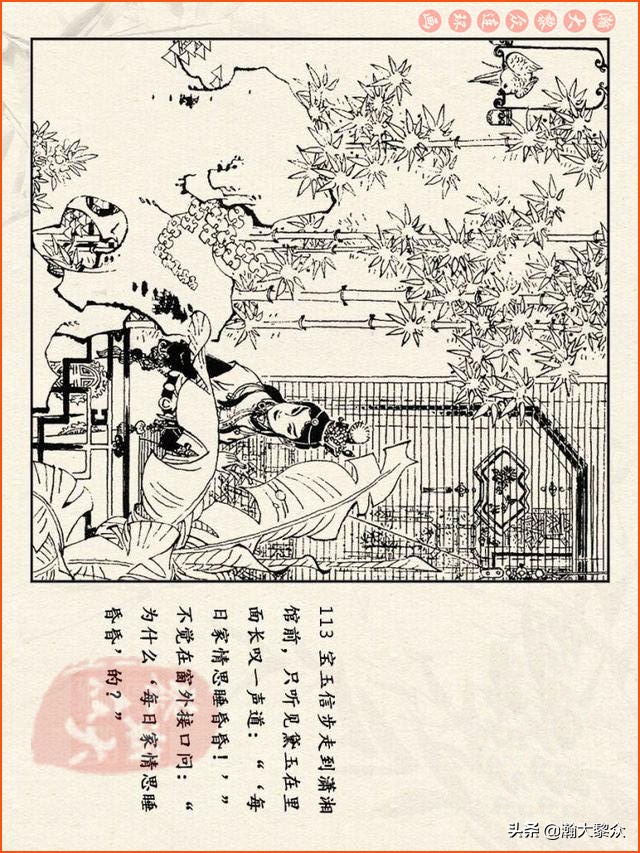 瀚大黎众连环画
113 宝玉信步走到潇湘
馆前，只听见黛玉在里
面长叹一声道：“‘每
日家情思睡昏昏！’”
不觉在窗外接口问：“
为什么‘每日家情思睡
昏昏’的？”
头条 @瀚大黎众